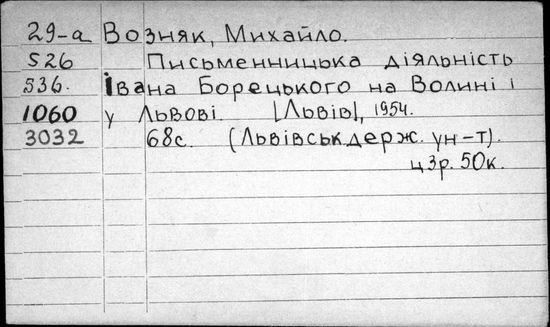 29-а Возняк, Михайло.
526 Письменницька діяльність
536. Івана Борецького на Волині і
1060 у Львові. [Львів], 1954.
3032 68с. (Львівськ.держ. ун-т).
ц 3р. 50к.